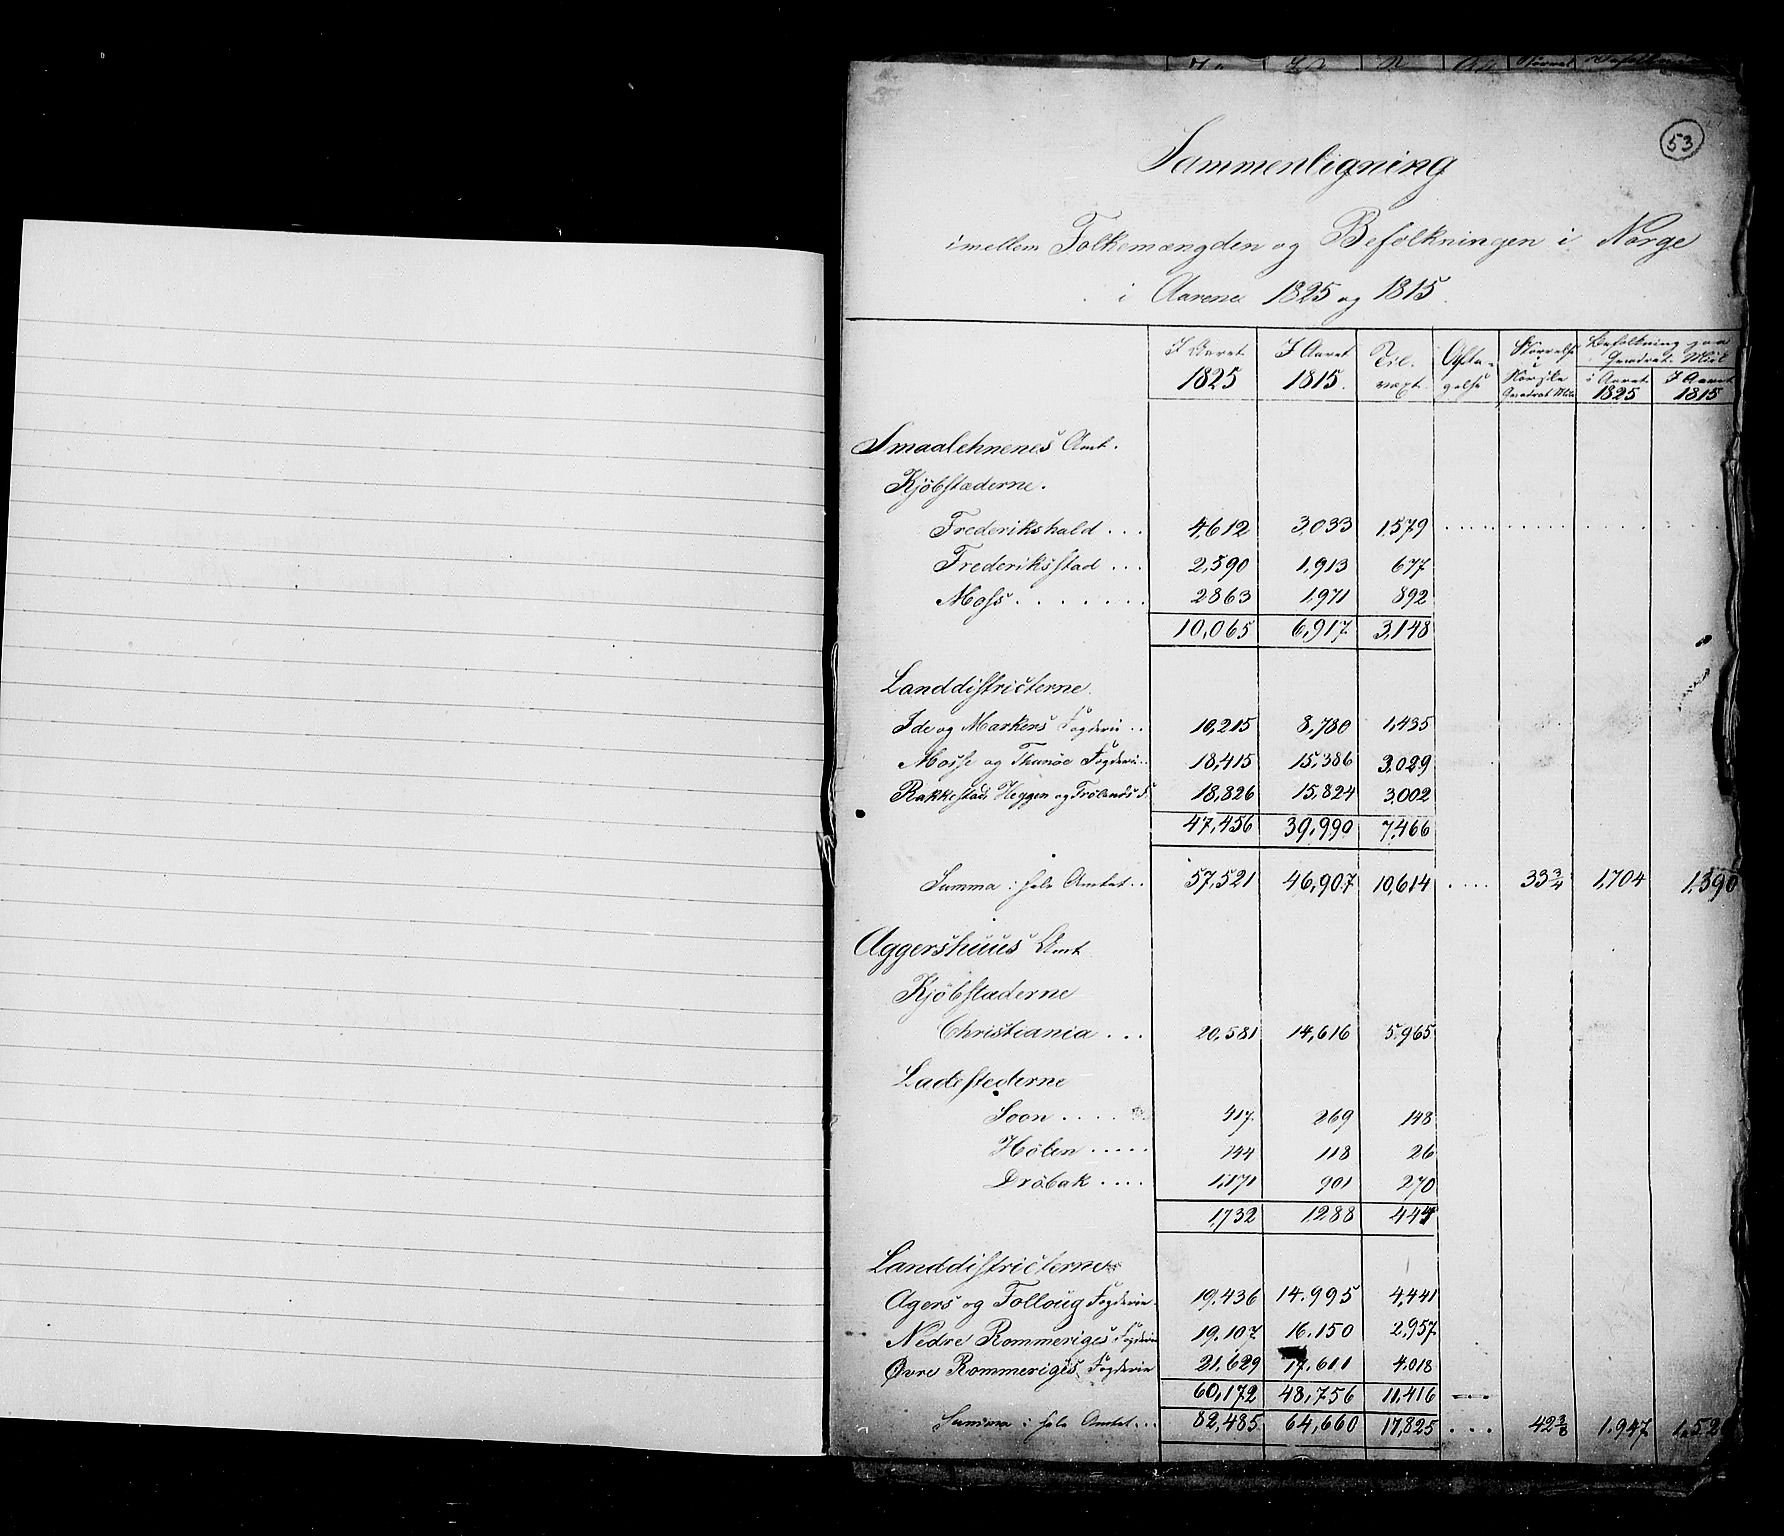 53
Sammenligning
imellem Folkemængden og Befolkningen i Norge
i Aarene 1825 og 1815.
I Aaret 1825 I Aaret 1815. Til-væxt Afta-gelse Størrelse i Norske Quadrat Mile Befolkning paa Quadrat-Miil i Aaret 1825 I Aaret 1815
Smaalehnenes Amt.
Kjöbstæderne.
Frederikshald . . . 4,612 3,033 1,579
Frederiksstad . . . 2,590 1,913 677
Moss . . . . . . . 2863 1,971 892
10,065 6,917 3,148
Landdistricterne.
Ide og Markers Fogderie . . 10,215 8,780 1,435
Mosse og Thunöe Fogderie . . 18,415 15,386 3,029
Rakkestad, Heggen og Frölands F. 18,826 15,824 3,002
47,456 39,990 7,466
Summa i hele Amtet . . 57,521 46,907 10,614 . . . . 33 3/4 1,704 1,390
Aggershuus Amt
Kjöbstæderne
Christiania . . . 20,581 14,616 5,965
Ladestederne
Soon . . . . 417 269 148
Hölen . . . . . 144 118 26
Dröbak . . . . 1,171 901 270
1,732 1288 444
Landdistricterne
Agers og Folloug Fogderie . 19,436 14,995 4,441
Nedre Rommeriges Fogderie 19,107 16,150 2,957
Øvre Rommeriges Fogderie 21,629 17,611 4,018
60,172 48,756 11,416 —
Summa i hele Amtet . . . 82,485 64,660 17,825 . . . 42 3/8 1,947